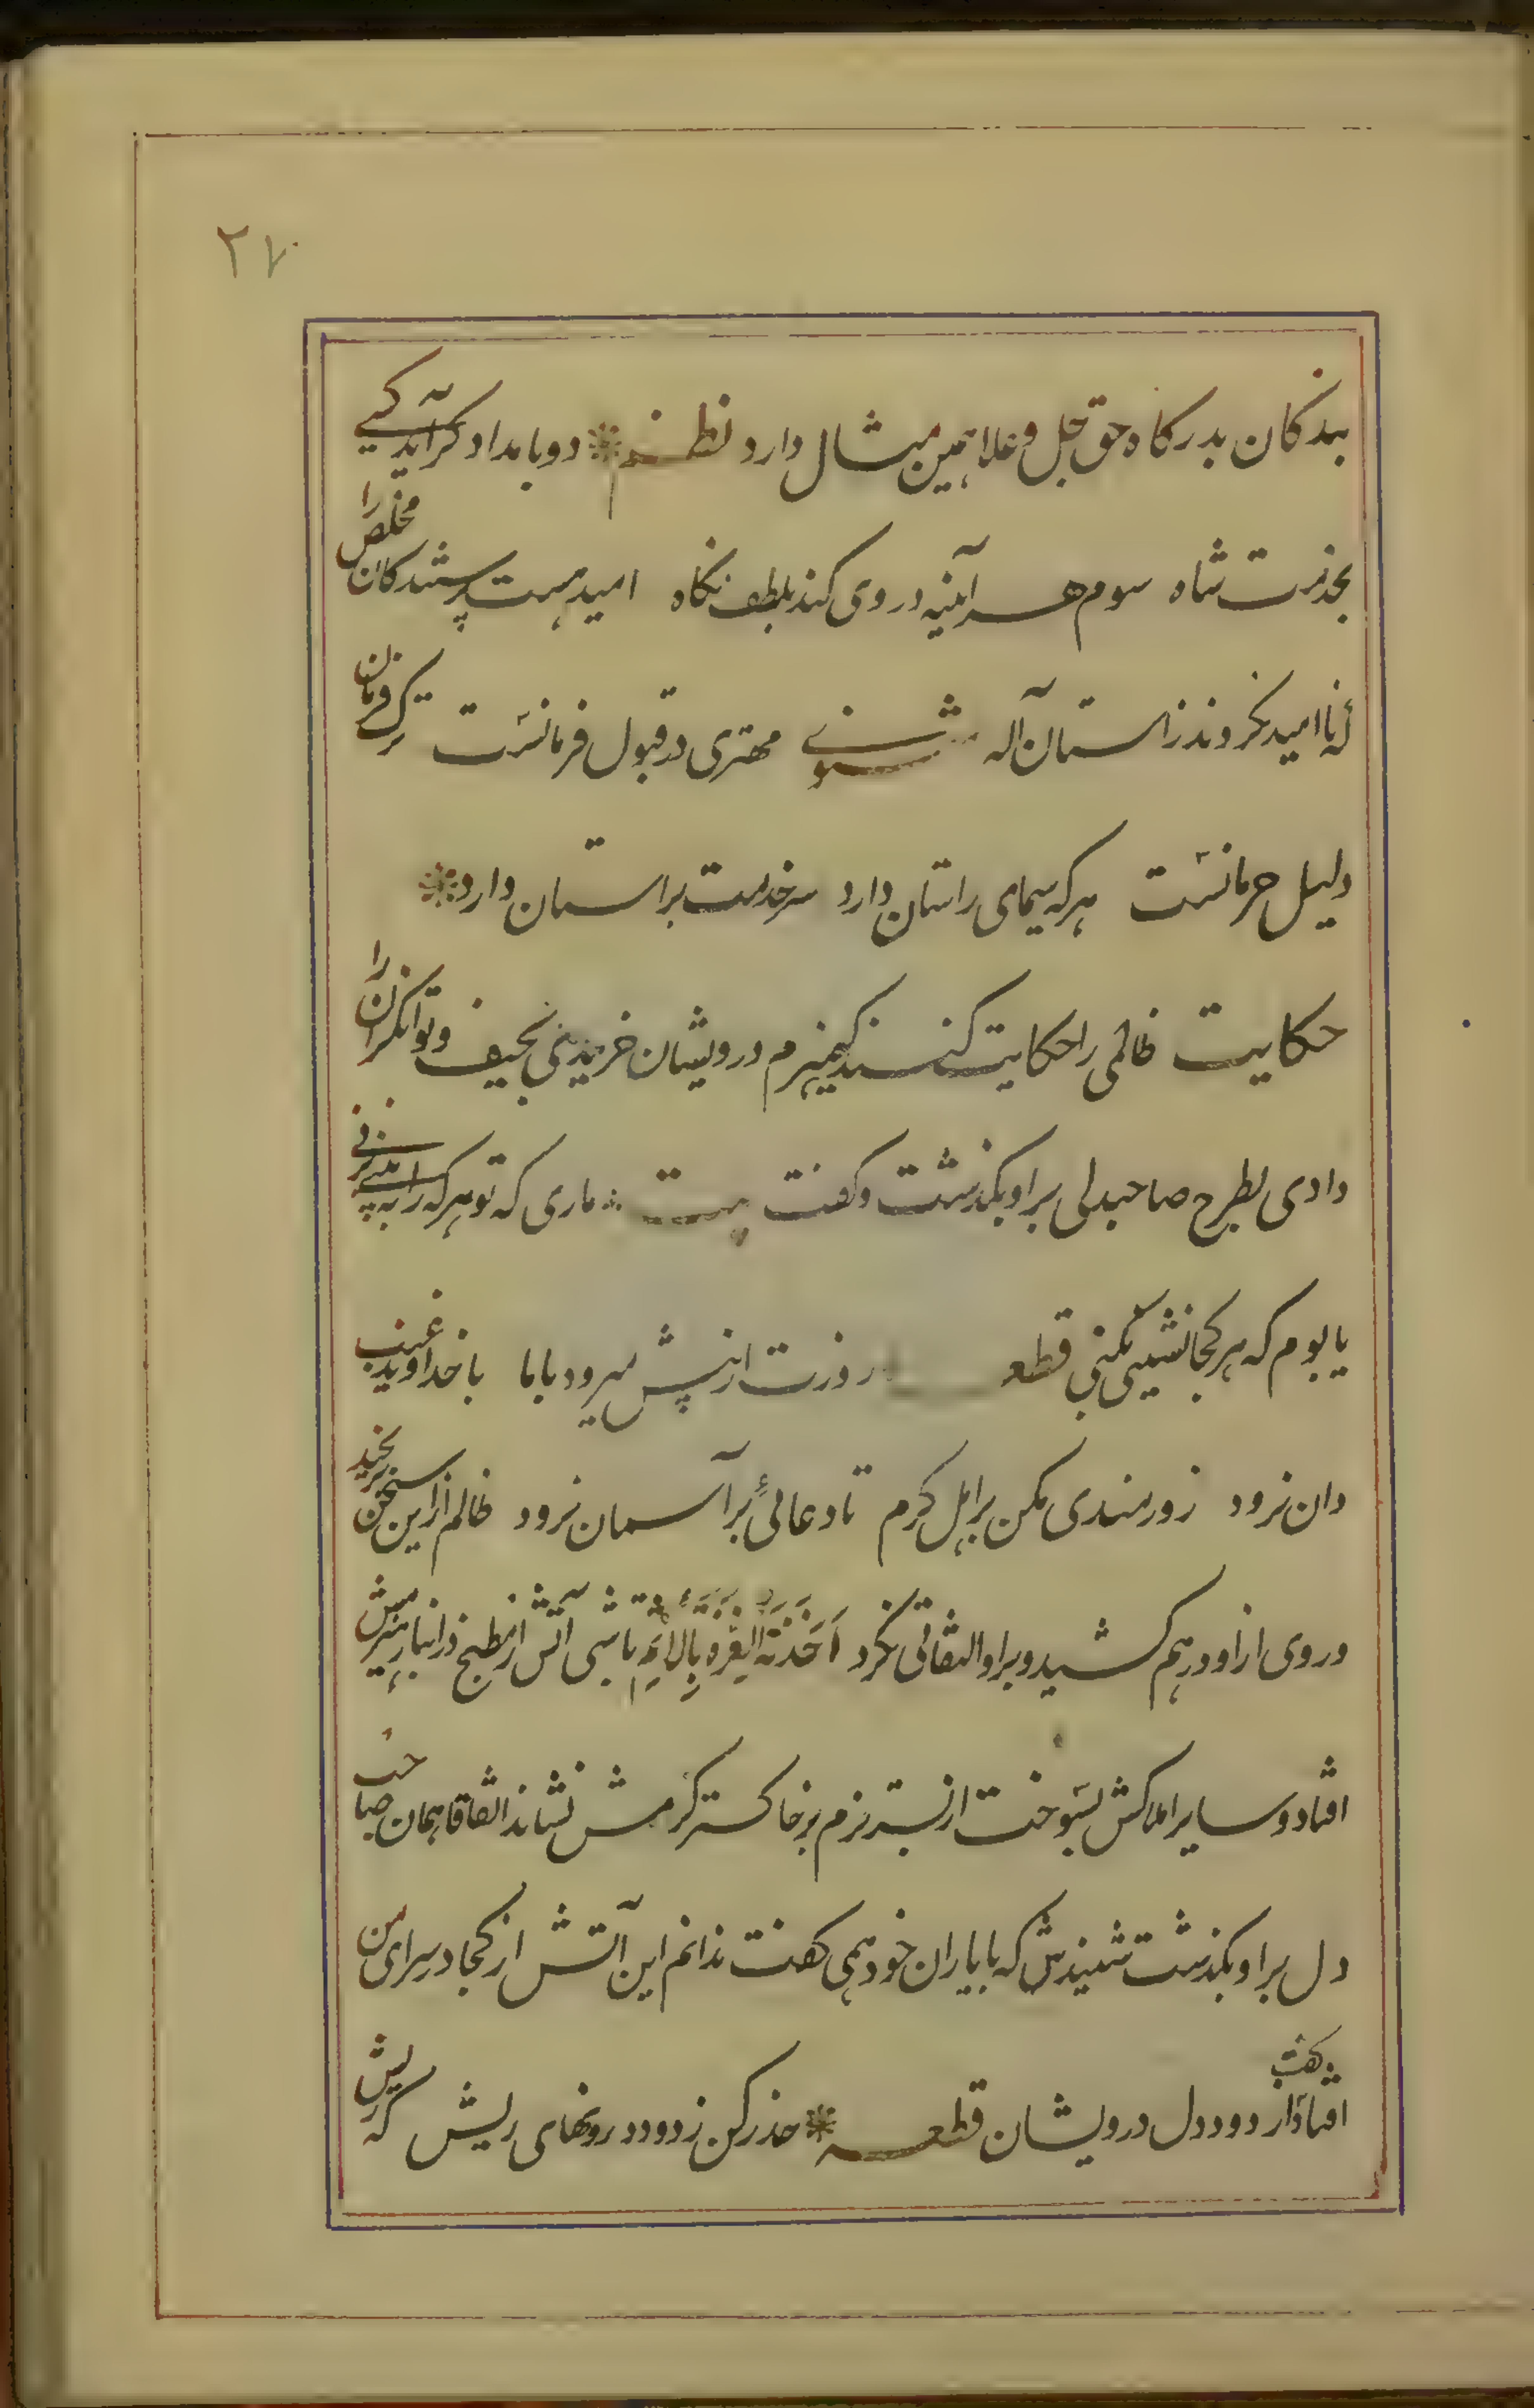 ۲۷
بندکان بدرکاه حق جل وعلا همین مثال دارد نظم دو بامداد کر آید کسی
بخدمت شاه سوم هر آینه در وی کند بلطف نکاه امید هست پرستندکان مخلص را
که ناامید نکروند ز استان آله مثنوی مهتری در قبول فرمانست ترک فرمان
دلیل حرمانست هر که سیمای راستان دارد سر خدمت بر استان دارد
حکایت ظالمی را حکایت کنند که هیزم درویشان خریدی بحیف و توانکران را
دادی بطرح صاحبدلی بر او بکذشت وکفت بیت ماری که تو هر که را به بینی بزنی
یا بوم که هر کجا نشینی بکنی قطعه زورت ار پیش میرود باما با خداوند غیب
دان نرود زورمندی مکن بر اهل کرم تا دعائی بر آسمان نرود ظالم از این سخن برنجید
وروی از او درهم کشید و براو التفاتی نکرد اَخَذَتهُ العِزَّة بِالاِثمِ تا شبی آتش از مطبخ در انبار هیزمش
افتاد و سایر املاکش بسوخت از بستر نرم بر خاکستر کرمش نشاند اتفاقا همان صاحب
دل بر او بکذشت شنیدش که با یاران خود همی کفت ندانم این آتش از کجا در سرای من
افتاد کفت از دود دل درویشان قطعه حذر کن ز دود درونهای ریش که ریش